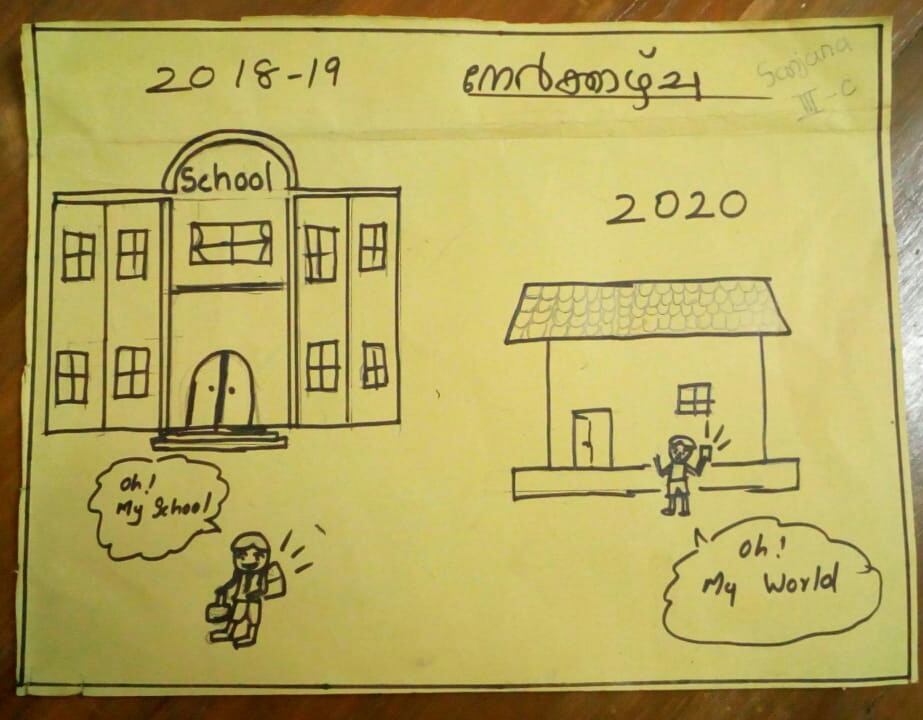 2018-19
നേർക്കാഴ്ച
Sanjana
III-C
School
2020
Oh!
My School
Oh!
My World